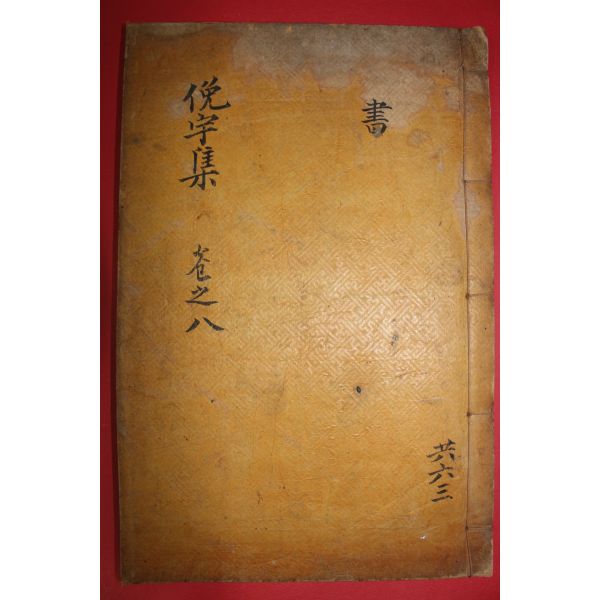 書
俛宇集 卷之八
共六三